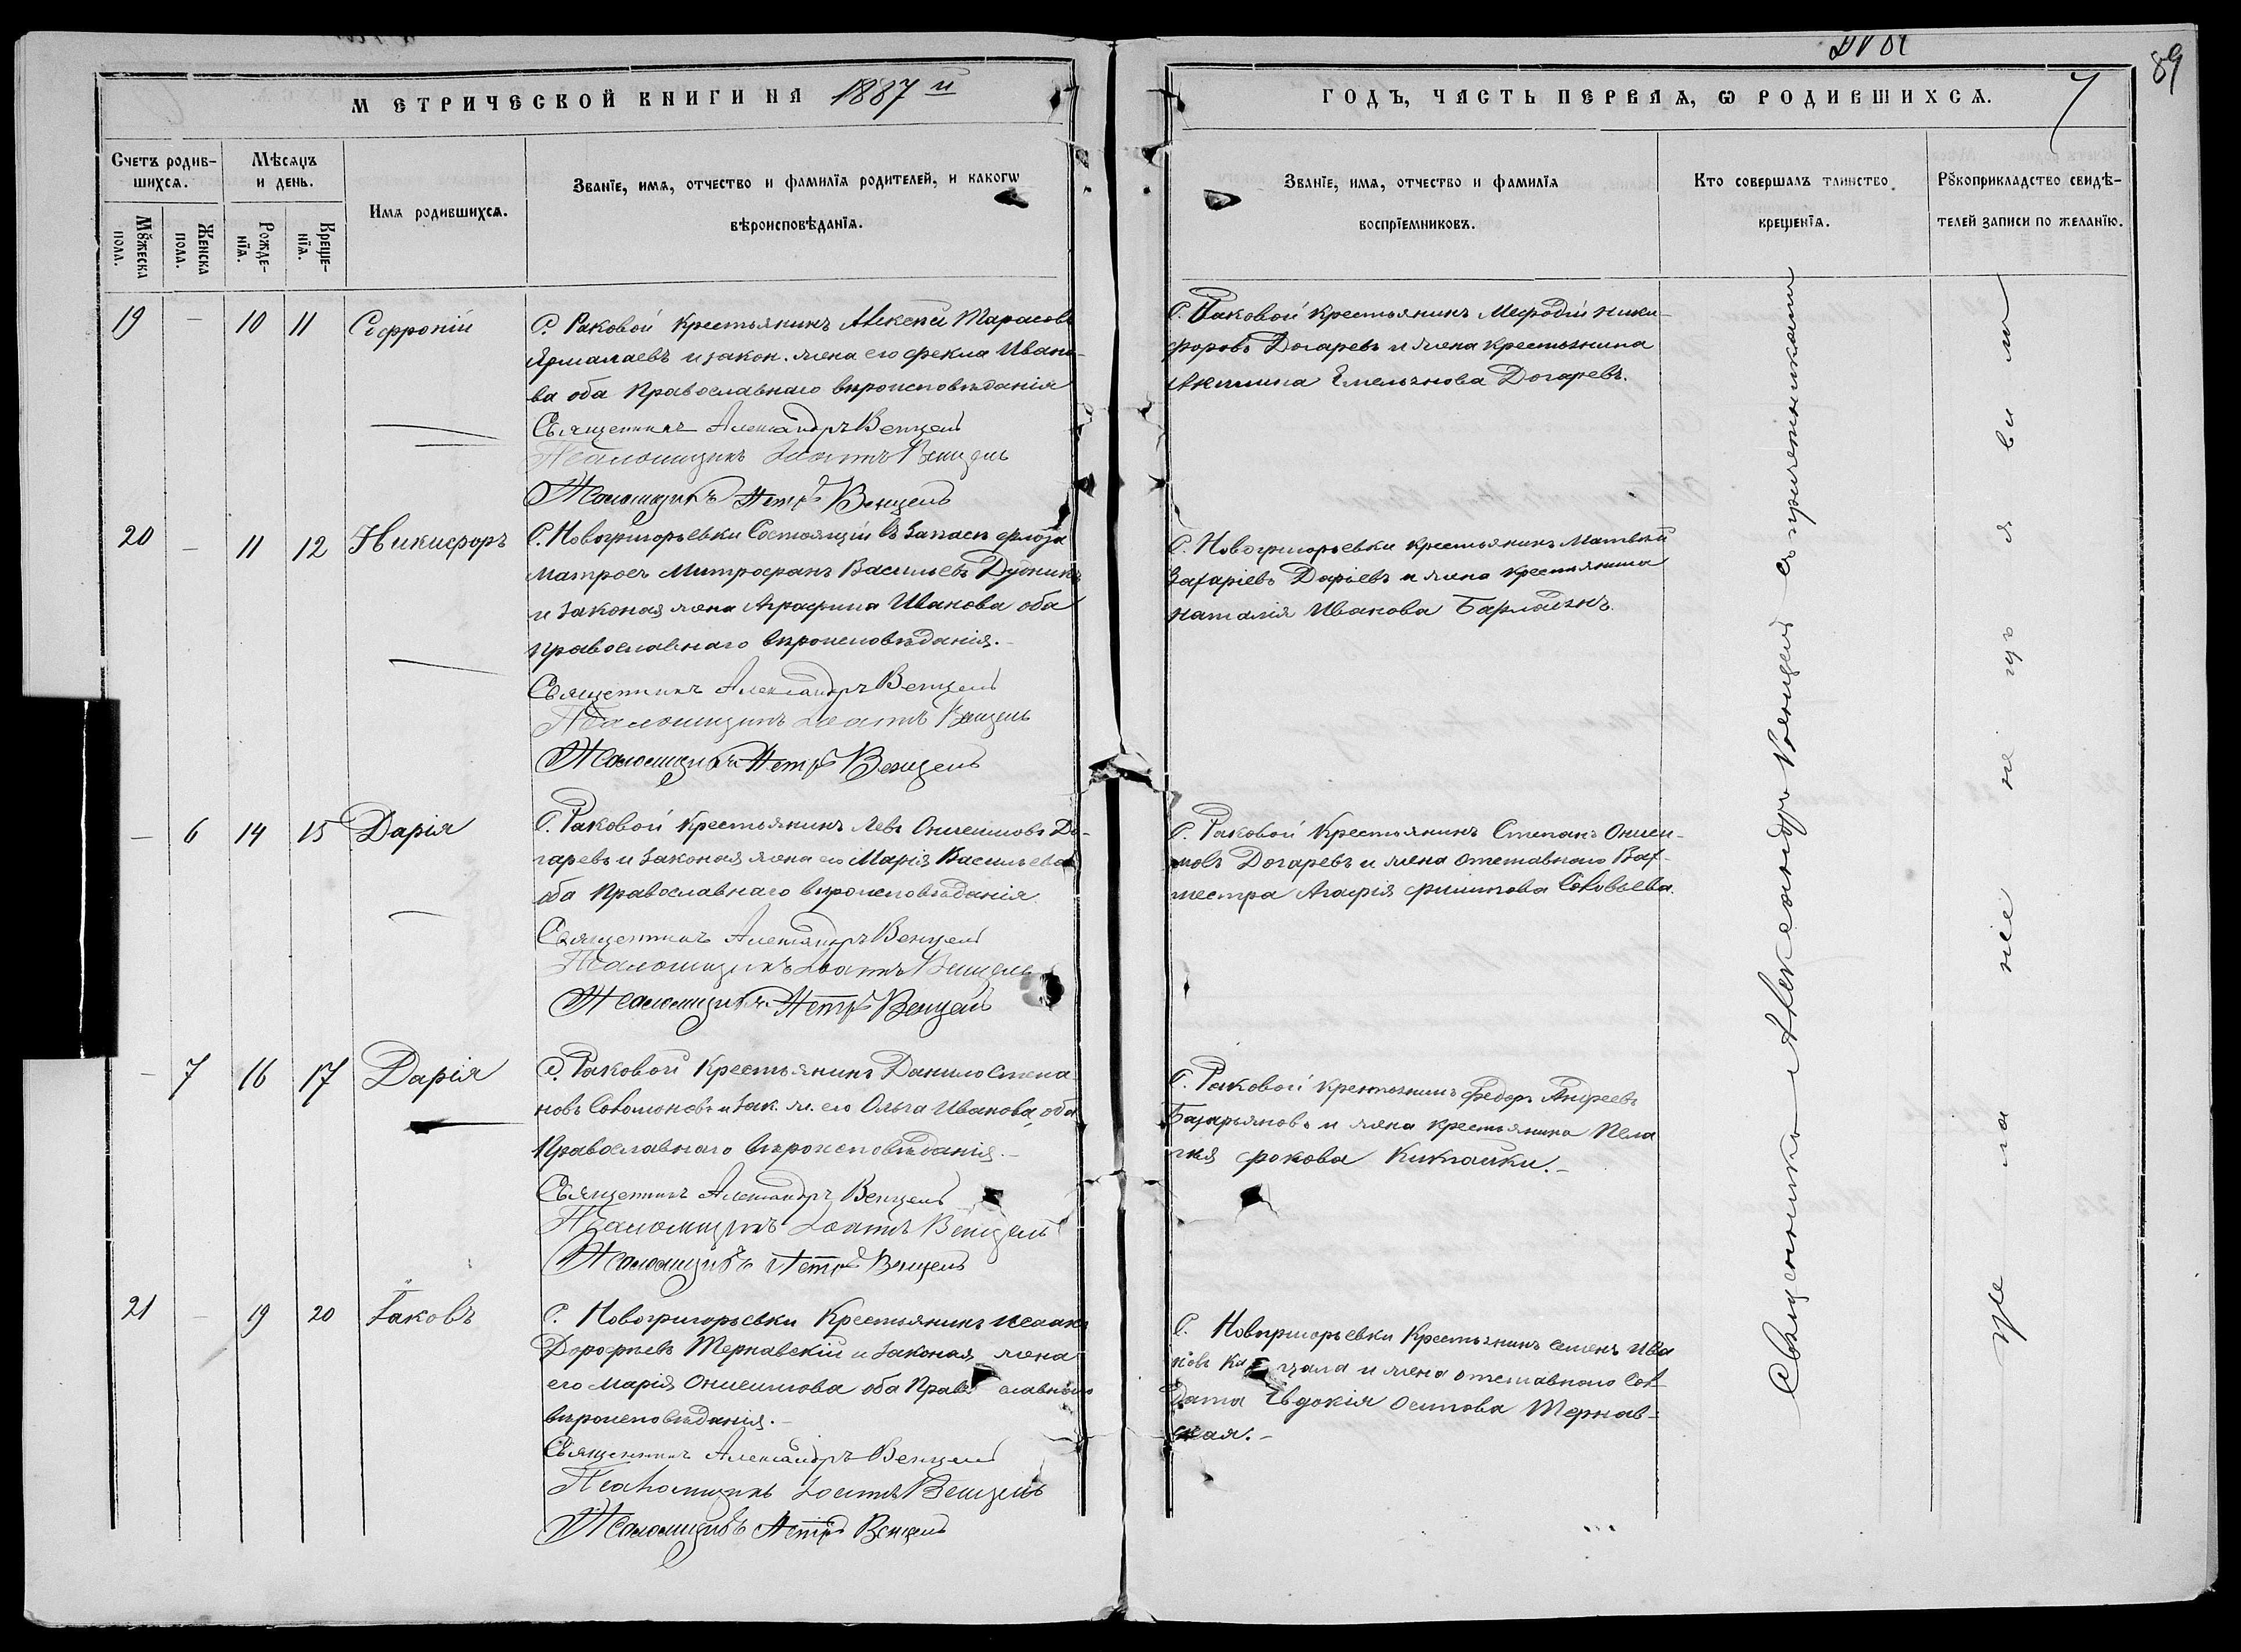 89
7
МЕТРИЧЕСКОЙ КНИГИ НА 1887й
ГОДЪ, ЧАСТЬ ПЕРВАЯ, Ѡ РОДИВШИХСѦ.
Счетъ родив-
шихсѧ.
Мѣсяцъ
и день.
Имѧ родившихсѧ.
Званїе, имѧ, отчество и фамилїѧ родителей, и какогѡ
вѣроисповѣданїѧ.
Мꙋжеска
пола.
Женска
пола.
Рожде-
нїѧ.
Креще-
нїѧ.
Званїе, имѧ, отчество и фамилїѧ
воспрїемниковъ.
Кто совершалъ таинство
крещенїѧ.
Рꙋкоприкладство свидѣ-
телей записи по желанїю.
19 — 10 11 Софроній
С. Раковой Крестьянинъ Алексѣй Тарасовъ
Ярмалаевъ и закон. жена его Фекла Ивано-
ва оба Православнаго вѣроисповѣданія
Священникъ Александръ Венцель
Псаломщикъ Іоаннъ Венцель
Псаломщикъ Петръ Венцель
С. Раковой Крестьянинъ Меѳодій Ники-
форовъ Догаревъ и жена крестьянина
Акилина Емельянова Догаревъ.
20 — 11 12 Никифоръ
С. Новогригорьевки Состоящій въ Запасѣ флота
Матросъ Митрофанъ Васильевъ Дудникъ
и законая жена Аграфина Иванова оба
православнаго вѣроисповѣданія.-
Священникъ Александръ Венцель
Псаломщикъ Іоаннъ Венцель
Псаломщикъ Петръ Венцель
С. Новогригорьевки крестьянинъ Матвѣй
Захаріевъ Даріевъ и жена крестьянина
Наталія Иванова
— 6 14 15 Дарія
С. Раковой Крестьянинъ Левъ Онисимовъ До-
гаревъ и законая жена его Марія Васильева
оба Православнаго вѣроисповѣданія
Священникъ Александръ Венцель
Псаломщикъ Іоаннъ Венцель
Псаломщикъ Петръ Венцель
С. Раковой Крестьянинъ СтепанъОниси-
мовъ Догаревъ и жена отставного Вах-
местра Агафія Филипова Соловьева.
— 7 16 17 Дарія
С. Раковой Крестьянинъ Данило Степа
новъ Соломоновъ и зак. ж. его Ольга Иванова, оба
Православнаго вѣроисповѣданія.-
Священникъ Александръ Венцель
Псаломщикъ Іоаннъ Венцель
Псаломщикъ Петръ Венцель
С. Раковой крестьянинъ Федоръ Андреевъ
и жена крестьянина Пела
гея Фокова
21 — 19 20 Іаковъ
С. Новогригорьевки Крестьянинъ Исаакъ
Дорофеевъ Тернавскій и законая жена
его Марія Онисимова оба Православнаго
вѣроисповѣданія.-
Священникъ Александръ Венцель
Псаломщикъ Іоаннъ Венцель
Псаломщикъ Петръ Венцель
С. Новогригорьевки Крестьянинъ Семенъ Ива
новъ и жена отставного Сол-
дата Евдокія Осипова Тернав-
ская.-
Священникъ Александръ Венцель съ причетниками
Же ла ніе не изъ я ви ли